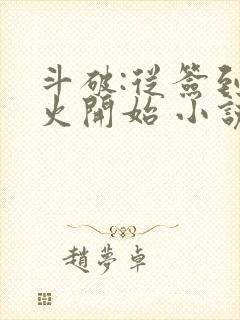 斗破:從簽到
火開始 小說
趙夢卓